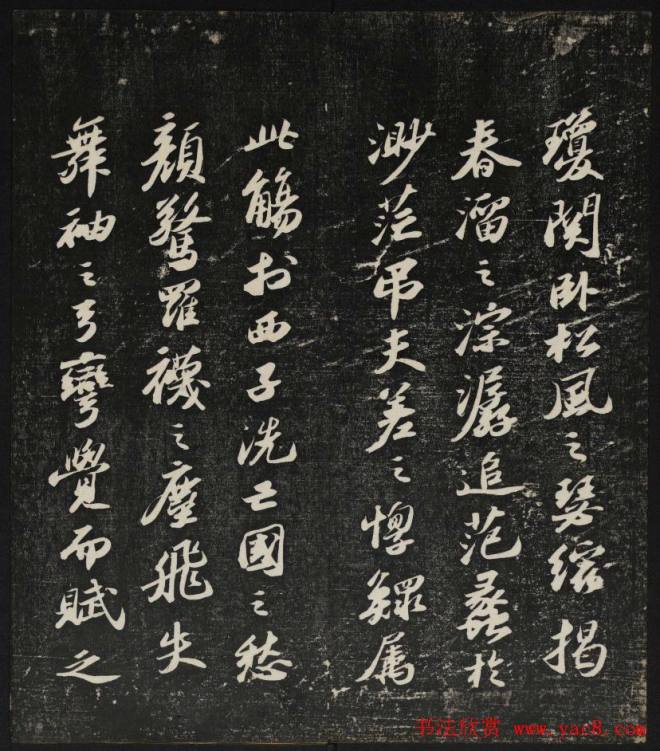 瓊關卧松風之瑟縮揭
春溜之淙潺追范蠡於
渺茫吊夫差之惸鰥属
此觴於西子洗亡國之愁
顔驚羅襪之塵飛失
舞袖之弓彎覺而賦之
书法欣赏 www.yac8.com